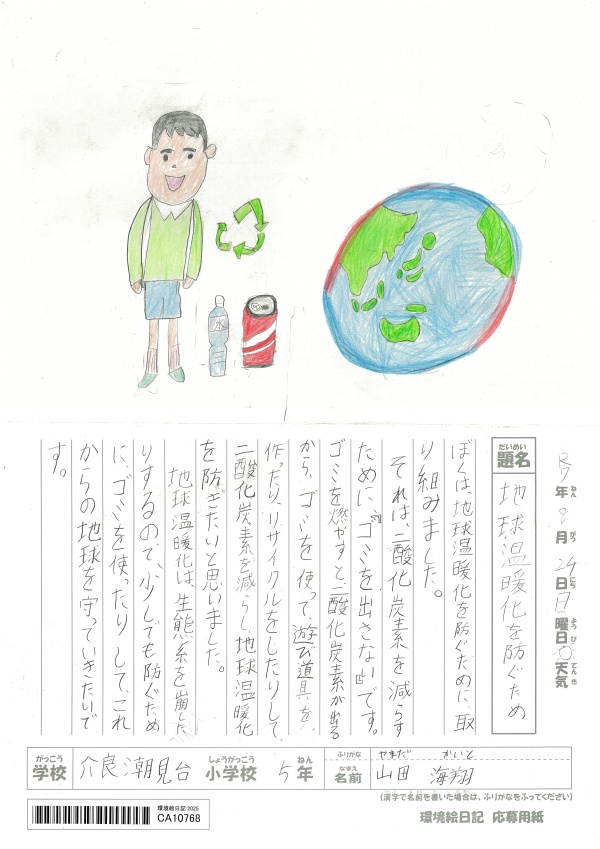 水
R7年8月24日日曜日 天気
ねん がつ にち ようび てんき
だいめい
題名 地球温暖化を防ぐため
ぼくは、地球温暖化を防ぐために、取
り組みました。
それは、二酸化炭素を減らす
ために、『ゴミを出さない』です。
ゴミを燃やすと二酸化炭素が出る
から、ゴミを使って、遊び道具を
作ったり、リサイクルをしたりして
二酸化炭素を減らし、地球温暖化
を防ぎたいと思いました。
地球温暖化は、生態系を崩した
りするので、少しでも防ぐため
に、ゴミを使ったりして、これ
からの地球を守っていきたいで
す。
がっこう しょうがっこう ねん ふりがな やまだ かいと
学校 介良潮見台 小学校 5年 なまえ 名前 山田 海翔
(漢字で名前を書いた場合は、ふりがなをふってください)
環境絵日記 2025
CA10768
環境絵日記 応募用紙